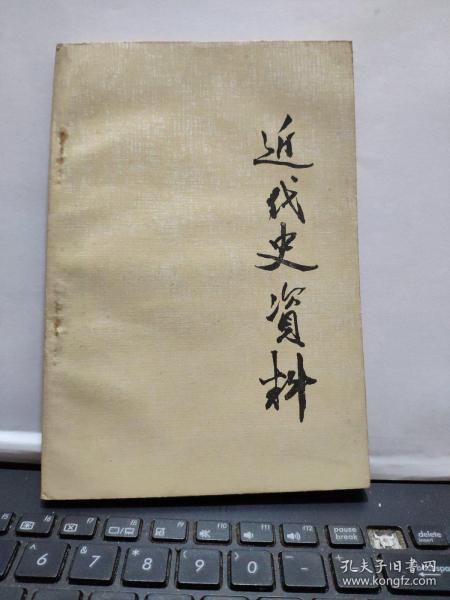 近代史資料
f5
f6
f7
f8
f9
f10
f11
f12
pause
break
delete
insert
^
6
&
7
*
8
(
9
)
0
-
+
=
孔夫子旧书网
www.kongfz.com